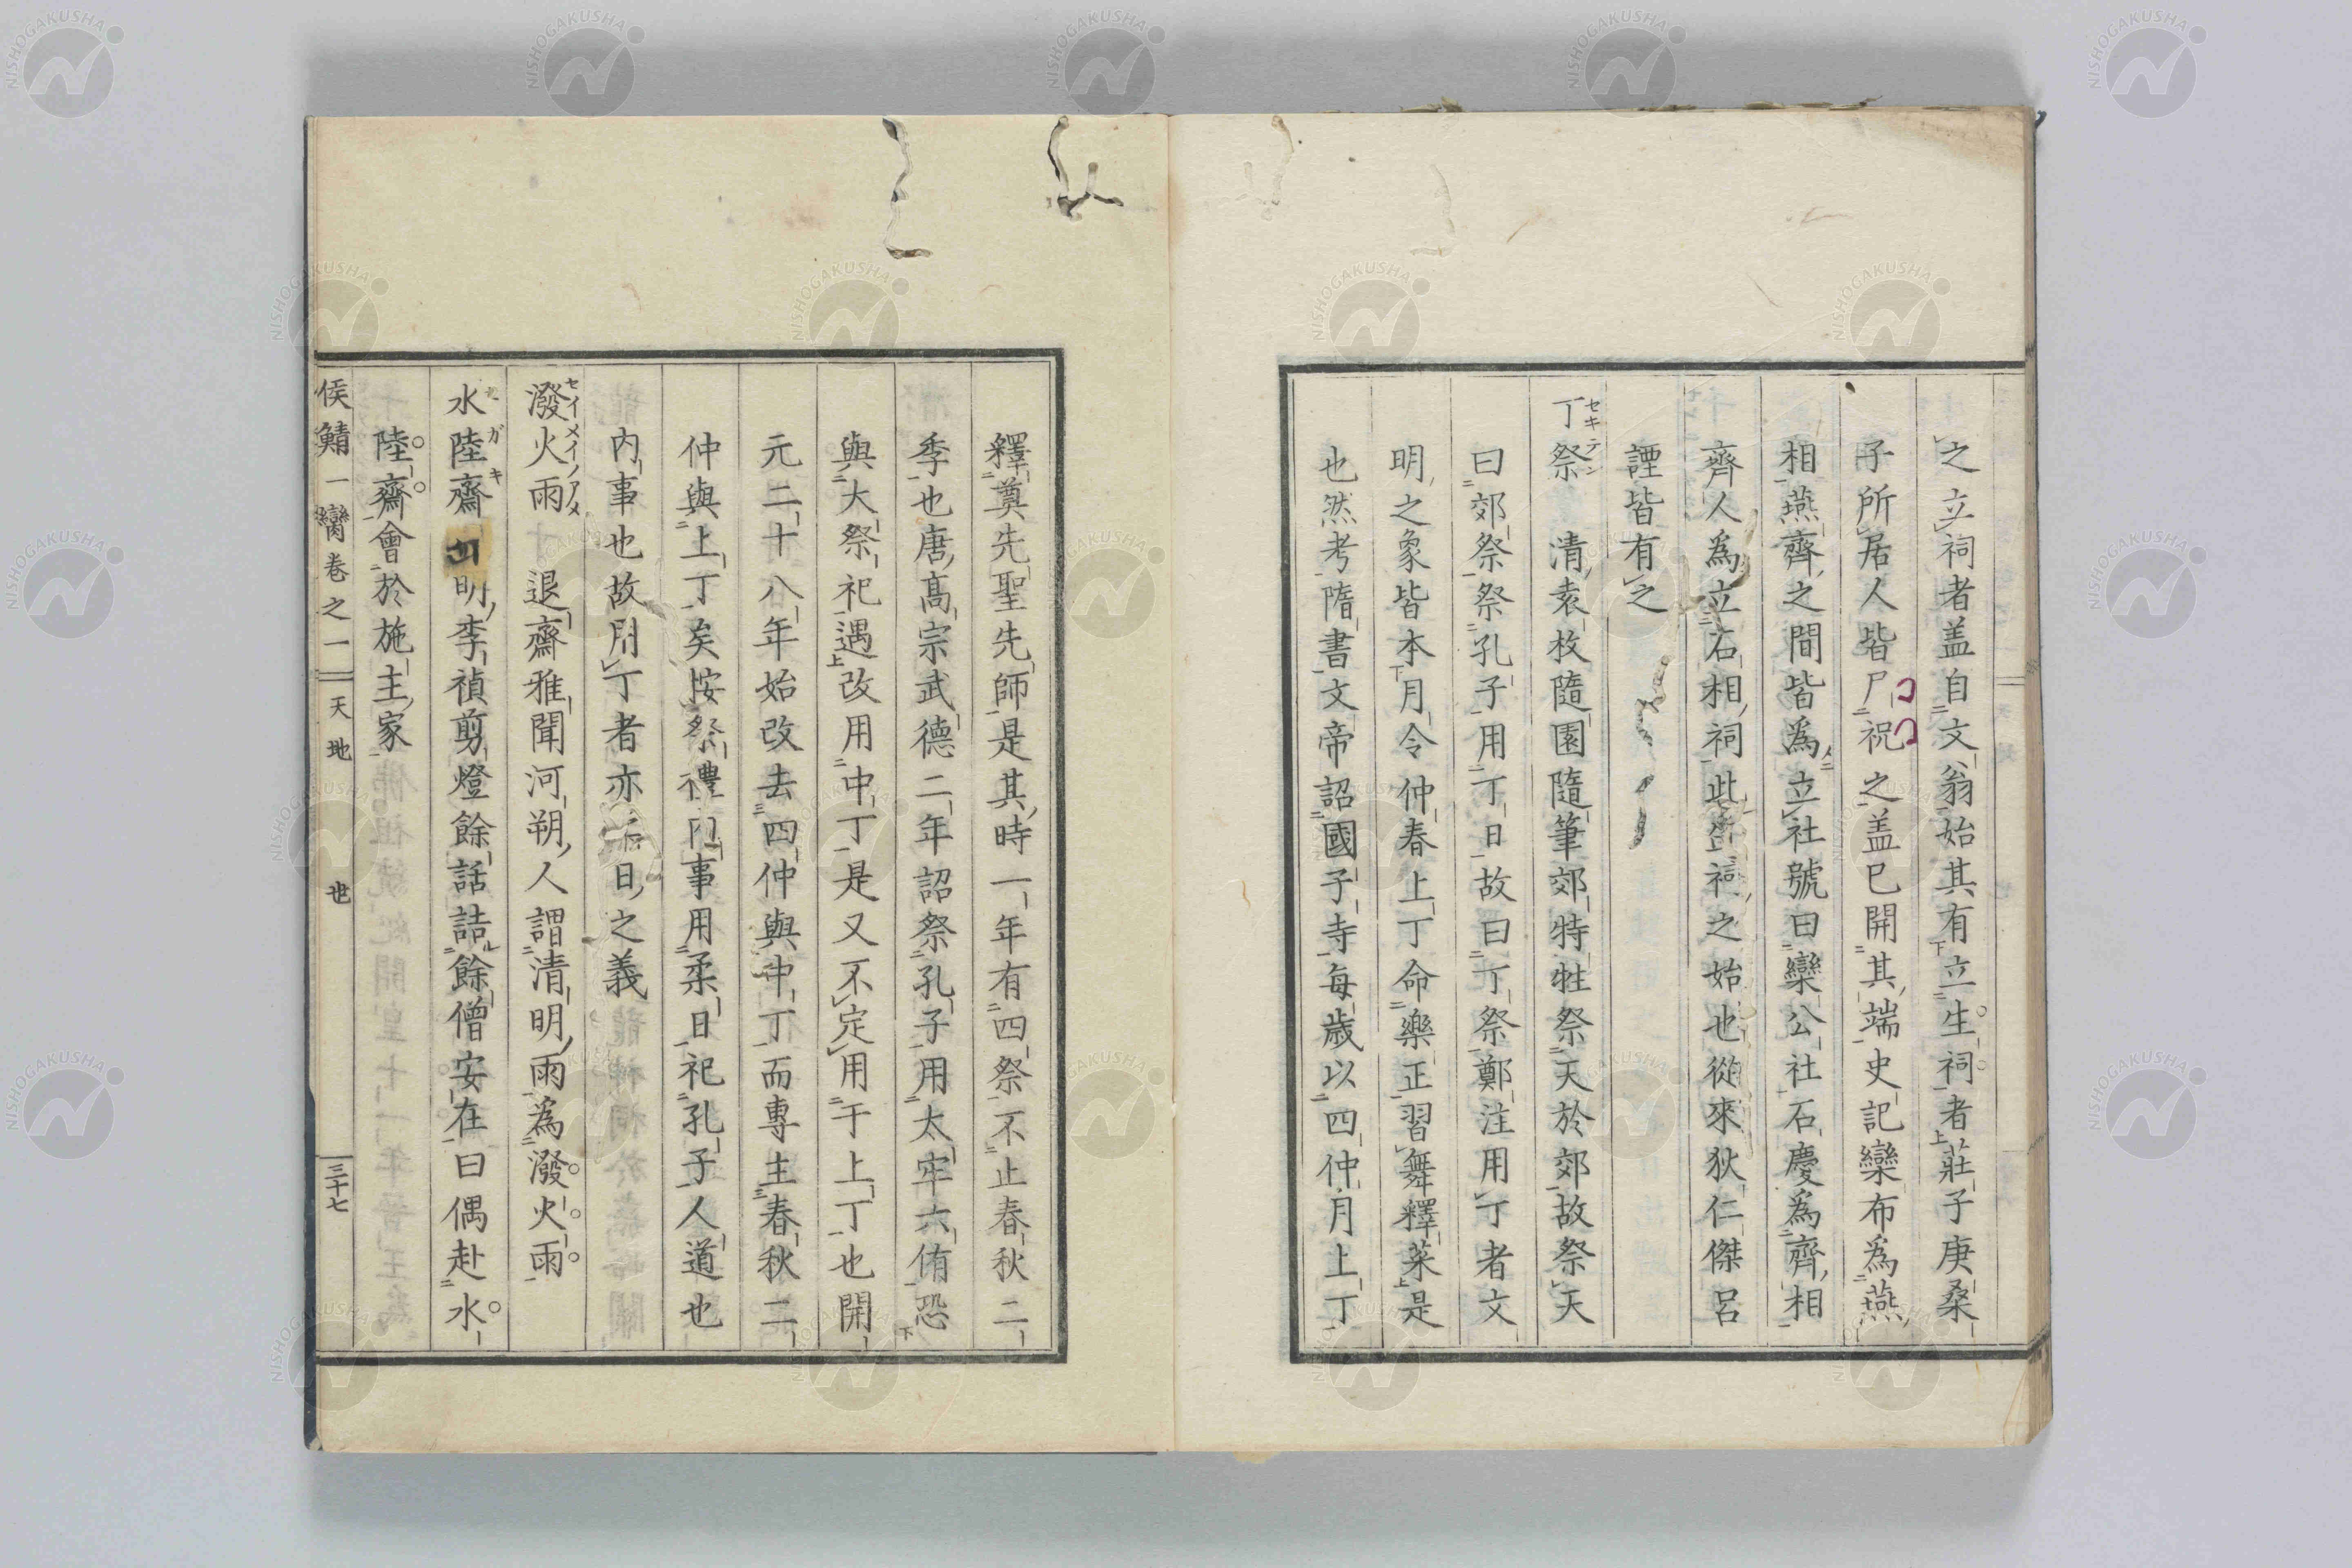 之立祠者盖自文翁始其有立生祠者莊子庚桑
子所居人皆尸祝之盖已開其端史記欒布為燕
相燕齊之間皆為立社號曰欒公社石慶為齊相
齊人為立石相祠此生祠之始也從來狄仁傑呂
諲皆有之
丁祭 清袁枚隨園隨筆郊特牲祭天於郊故祭天
セキテン
曰郊祭祭孔子用丁日故曰丁祭鄭注用丁者文
明之象皆本月令仲春上丁命樂正習舞釋菜是
也然考隋書文帝詔國子寺每歲以四仲月上丁
釋奠先聖先師是其時一年有四祭不止春秋二
季也唐高宗武德二年詔祭孔子用太牢六侑恐
與大祭祀遇改用中丁是又不定用于上丁也開
元二十八年始改去四仲與中丁而專主春秋二
仲與上丁矣按祭禮內事用柔日祀孔子人道也
內事也故用丁者亦柔日之義
潑火雨 退齋雅聞河朔人謂清明雨為潑火雨
セイメイノアメ
水陸齋 明李禎剪燈餘話詰餘僧安在曰偶赴水
ガキ
陸齋會於施主家
侯鯖一臠卷之一 天地 世 三十七
NISHOGAKUSHA